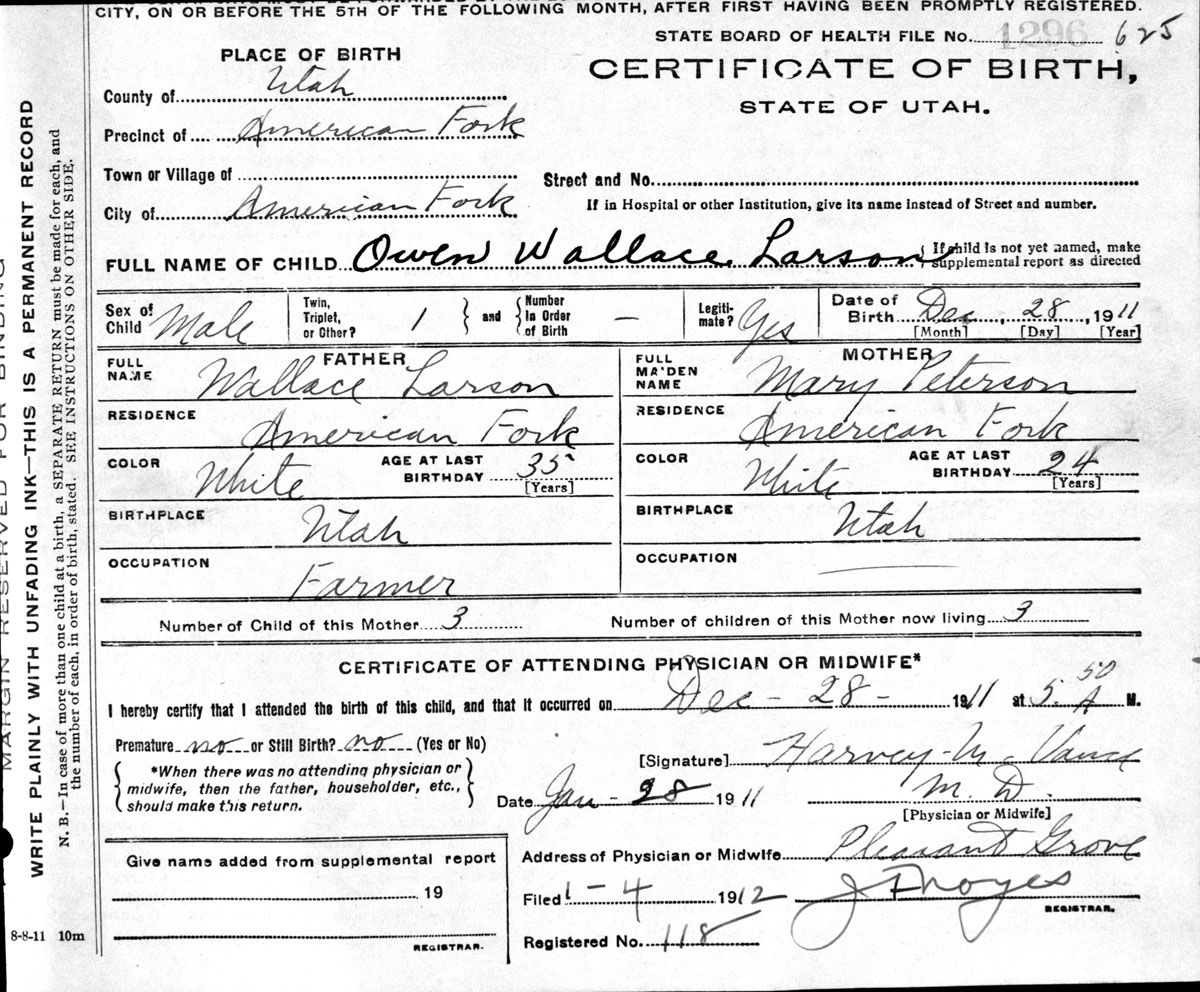 CITY, ON OR BEFORE THE 5TH OF THE FOLLOWING MONTH, AFTER FIRST HAVING BEEN PROMPTLY REGISTERED.
STATE BOARD OF HEALTH FILE No. 1296 625
PLACE OF BIRTH
CERTIFICATE OF BIRTH,
STATE OF UTAH.
County of Utah
Precinct of American Fork
Town or Village of
Street and No.
City of American Fork
If in Hospital or other Institution, give its name instead of Street and number.
FULL NAME OF CHILD Owen Wallace Larson { If child is not yet named, make supplemental report as directed
Sex of Child Male
Twin, Triplet, or Other? 1 } and { Number In Order of Birth —
Legitimate? Yes
Date of Birth Dec, 28, 1911
[Month] [Day] [Year]
FATHER
FULL NAME Wallace Larson
RESIDENCE American Fork
COLOR White AGE AT LAST BIRTHDAY 35
[Years]
BIRTHPLACE Utah
OCCUPATION Farmer
MOTHER
FULL MAIDEN NAME Mary Peterson
RESIDENCE American Fork
COLOR White AGE AT LAST BIRTHDAY 24
[Years]
BIRTHPLACE Utah
OCCUPATION —
Number of Child of this Mother 3 Number of children of this Mother now living 3
CERTIFICATE OF ATTENDING PHYSICIAN OR MIDWIFE*
I hereby certify that I attended the birth of this child, and that it occurred on Dec - 28 - 1911 at 5.50 A M.
Premature no or Still Birth? no (Yes or No)
{ *When there was no attending physician or
midwife, then the father, householder, etc.,
should make this return. }
[Signature] Harvey M Vance
M. D.
Date Jan - 28 1911
[Physician or Midwife]
Address of Physician or Midwife Pleasant Grove
Filed 1 - 4 1912 J F Noyes
REGISTRAR.
Registered No. 118
Give name added from supplemental report
19
REGISTRAR.
8-8-11 10m
MARGIN RESERVED FOR BINDING
WRITE PLAINLY WITH UNFADING INK—THIS IS A PERMANENT RECORD
N. B.—In case of more than one child at a birth, a SEPARATE RETURN must be made for each, and
the number of each, in order of birth, stated. SEE INSTRUCTIONS ON OTHER SIDE.